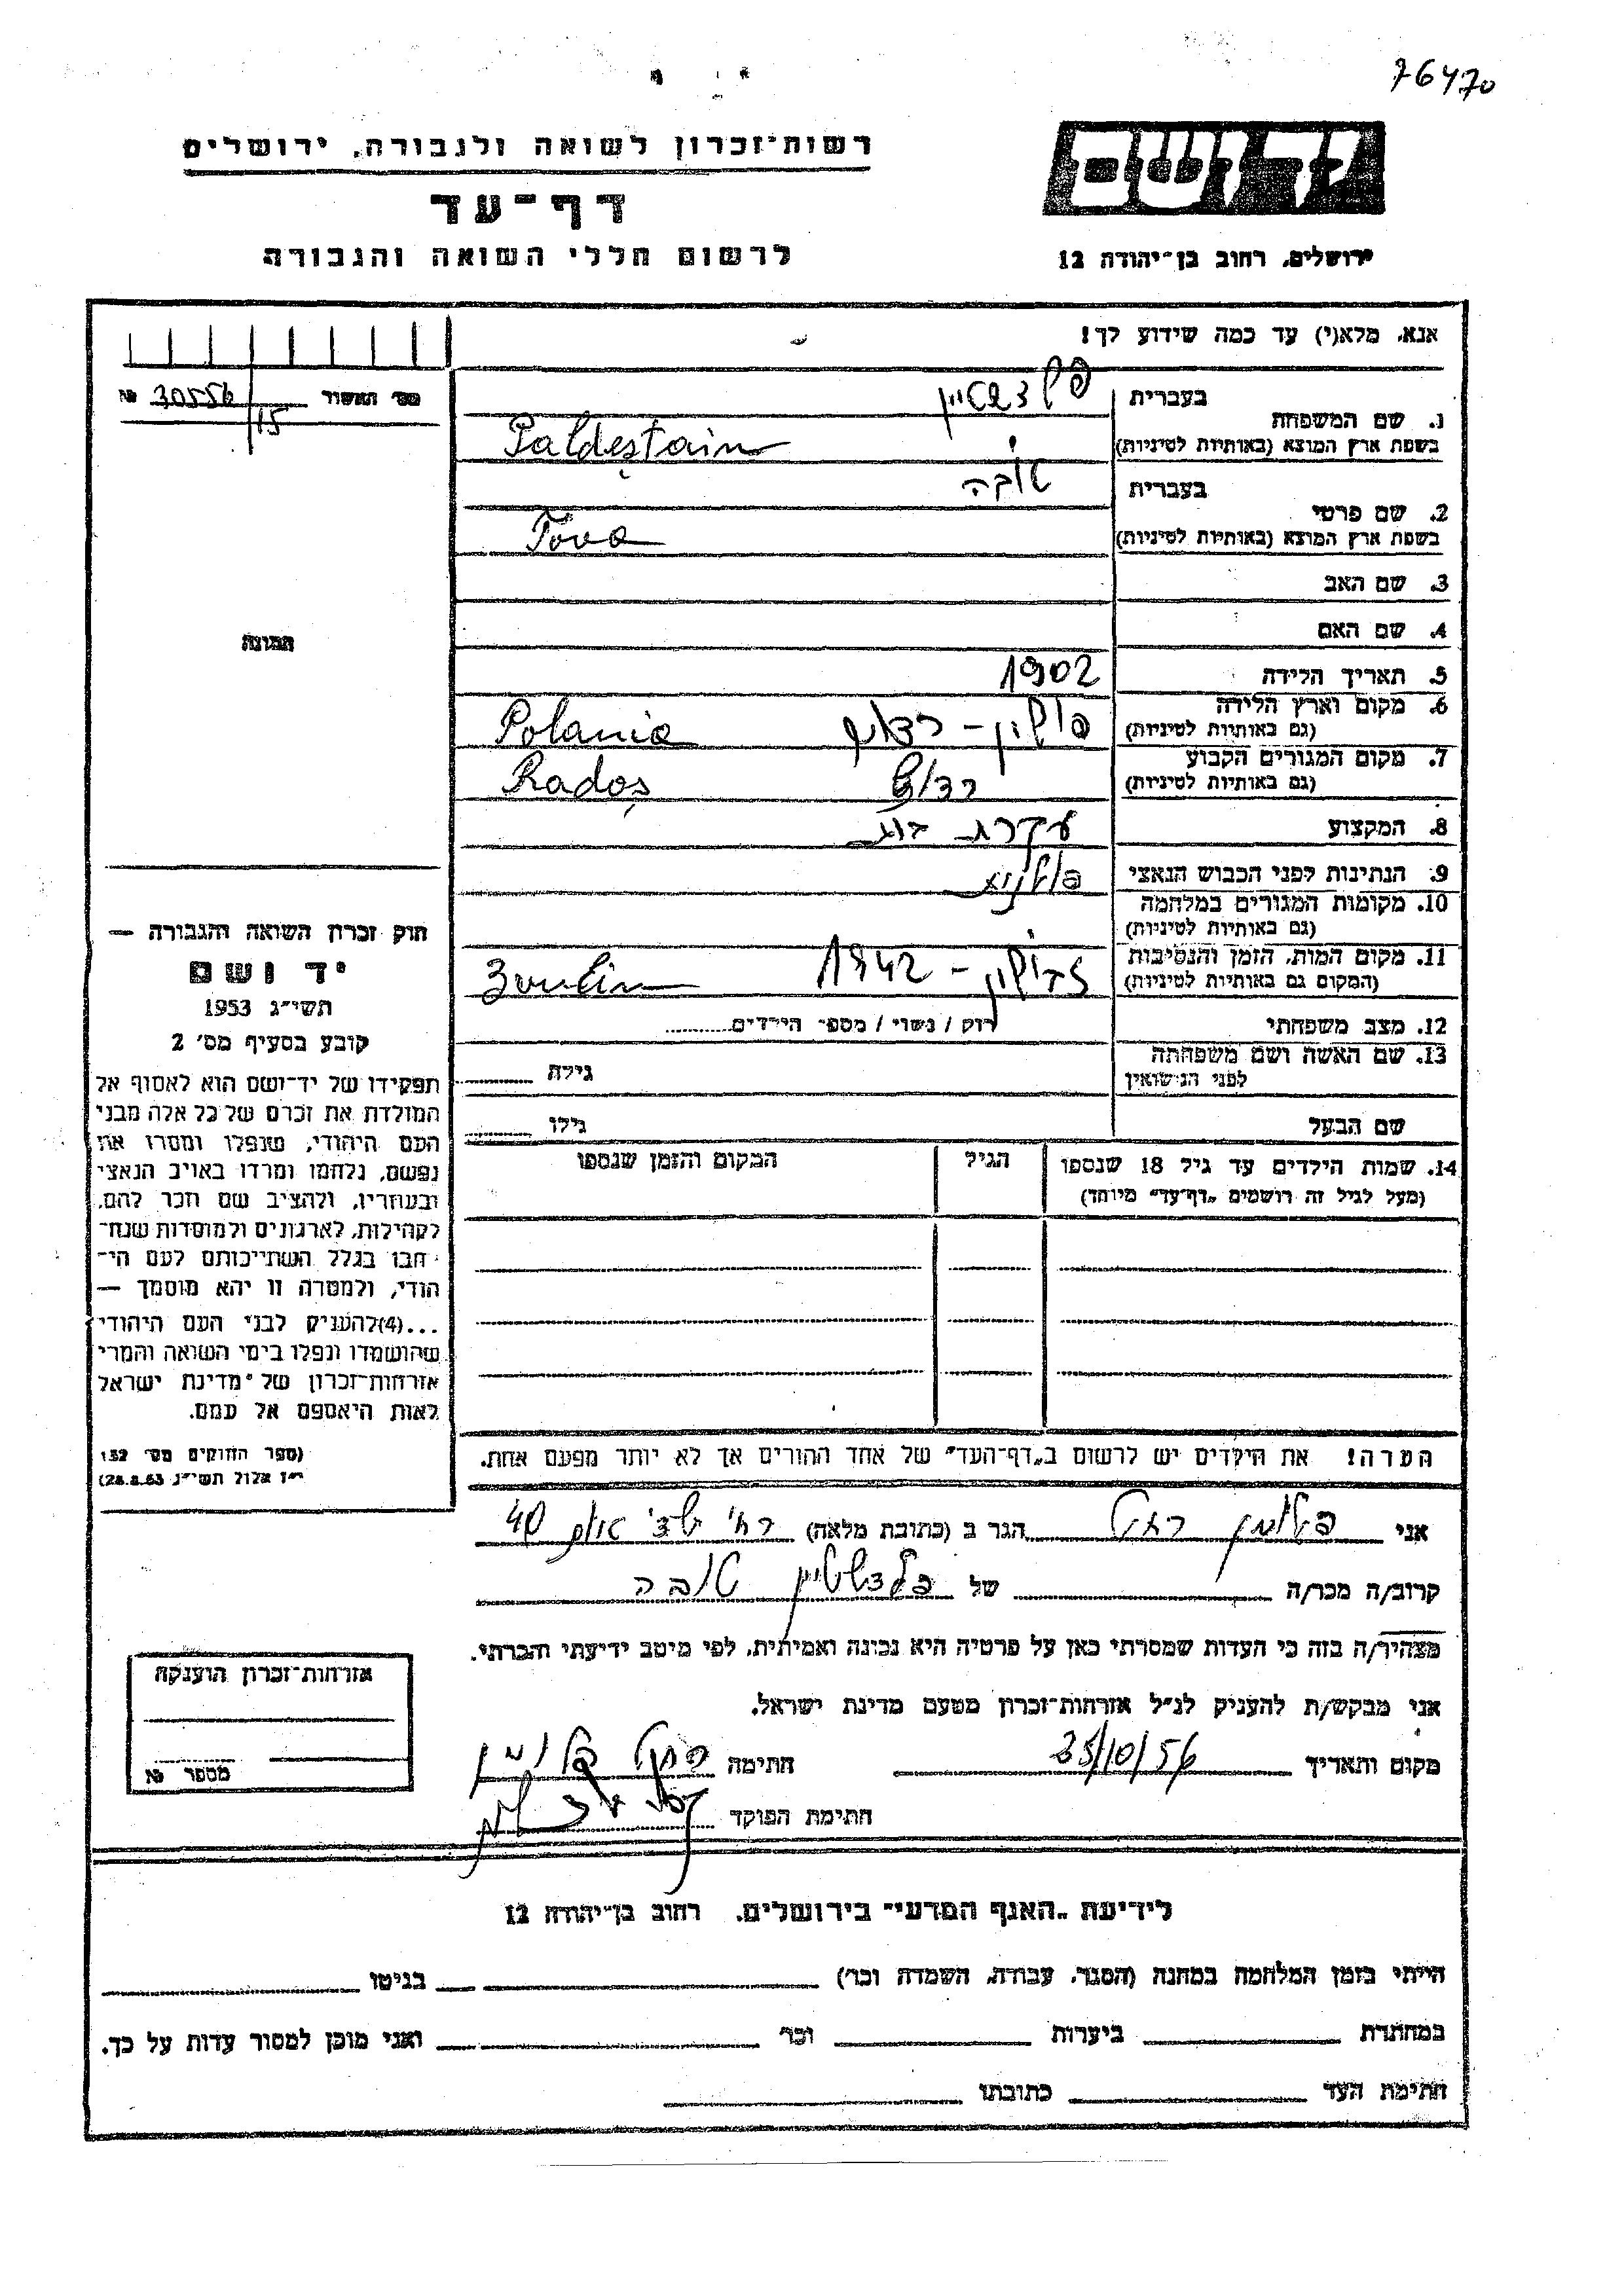 76470
רשות־זכרון לשואה ולגבורה, ירושלים
דף־עד
לרשום חללי השואה והגבורה
יד ושם
ירושלים, רחוב בן־יהודה 12
אנא, מלא(י) עד כמה שידוע לך!
מס׳ האשור 30556/15 №
התמונה
1. שם המשפחה
בעברית
בשפת ארץ המוצא (באותיות לטיניות) Paldeştain
2. שם פרטי
בעברית טובה
בשפת ארץ המוצא (באותיות לטיניות) Tova
3. שם האב
4. שם האם
5. תאריך הלידה 1902
6. מקום וארץ הלידה
(גם באותיות לטיניות) פולין - Polania
7. מקום המגורים הקבוע
(גם באותיות לטיניות) Radoş
8. המקצוע עקרת בית
9. הנתינות לפני הכבוש הנאצי פולנית
10. מקומות המגורים במלחמה
(גם באותיות לטיניות)
11. מקום המות, הזמן והנסיבות
(המקום גם באותיות לטיניות) 1942 -
12. מצב משפחתי רוק / נשוי / מספר הילדים
13. שם האשה ושם משפחתה
לפני הנישואין
גילה
שם הבעל
גילו
14. שמות הילדים עד גיל 18 שנספו
(מעל לגיל זה רושמים „דף־עד” מיוחד)
הגיל
המקום והזמן שנספו
הערה! את הילדים יש לרשום ב„דף־העד” של אחד ההורים אך לא יותר מפעם אחת.
חוק זכרון השואה והגבורה —
יד ושם
תשי״ג 1953
קובע בסעיף מס׳ 2
תפקידו של יד־ושם הוא לאסוף אל
המולדת את זכרם של כל אלה מבני
העם היהודי, שנפלו ומסרו את
נפשם, נלחמו ומרדו באויב הנאצי
ובעוזריו, ולהציב שם וזכר להם,
לקהילות, לארגונים ולמוסדות שנח־
רבו בגלל השתייכותם לעם הי־
הודי, ולמטרה זו יהא מוסמך —
...(4)להעניק לבני העם היהודי
שהושמדו ונפלו בימי השואה והמרי
אזרחות־זכרון של מדינת ישראל
לאות היאספם אל עמם.
(ספר החוקים מס׳ 132
י״ז אלול תשי״ג 28.8.53)
אני הגר ב (כתובת מלאה) 40
קרוב/ה מכר/ה של פלדשטיין טובה
מצהיר/ה בזה כי העדות שמסרתי כאן על פרטיה היא נכונה ואמיתית, לפי מיטב ידיעתי והכרתי.
אני מבקש/ת להעניק לנ״ל אזרחות־זכרון מטעם מדינת ישראל.
מקום ותאריך 25/10/56 חתימה
חתימת הפוקד
אזרחות־זכרון הוענקה
מספר №
לידיעת „האגף המדעי” בירושלים, רחוב בן־יהודה 12
הייתי בזמן המלחמה במחנה (הסגר, עבודה, השמדה וכו׳) בגיטו
במחתרת ביערות וכו׳ ואני מוכן למסור עדות על כך.
חתימת העד כתובתו